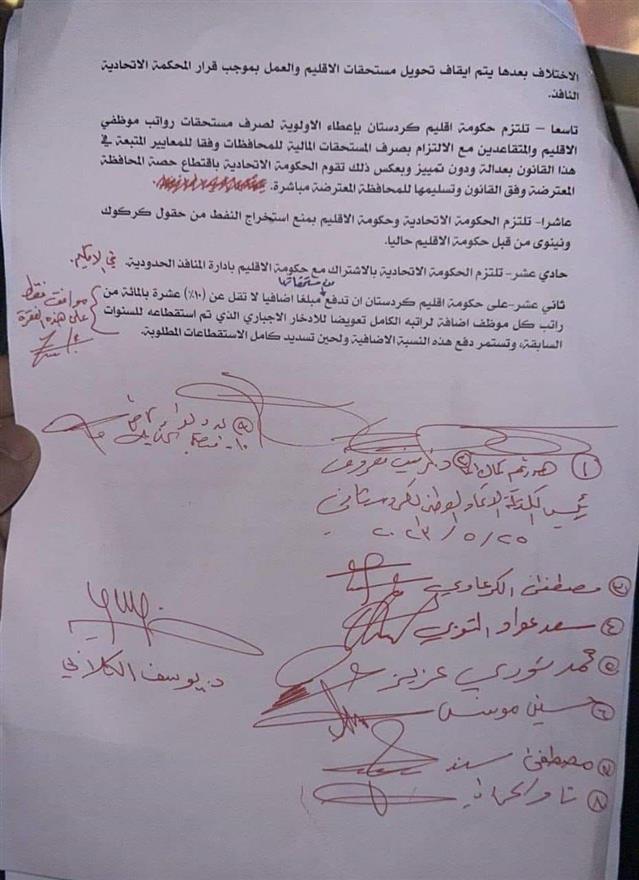 الاختلاف بعدها يتم ايقاف تحويل مستحقات الاقليم والعمل بموجب قرار المحكمة الاتحادية
النافذ.
تاسعا – تلتزم حكومة اقليم كردستان بإعطاء الاولوية لصرف مستحقات رواتب موظفي
الاقليم والمتقاعدين مع الالتزام بصرف المستحقات المالية للمحافظات وفقا للمعايير المتبعة في
هذا القانون بعدالة ودون تمييز وبعكس ذلك تقوم الحكومة الاتحادية باقتطاع حصة المحافظة
المعترضة وفق القانون وتسليمها للمحافظة المعترضة مباشرة.
عاشرا- تلتزم الحكومة الاتحادية وحكومة الاقليم بمنع استخراج النفط من حقول كركوك
ونينوى من قبل حكومة الاقليم حاليا.
حادي عشر- تلتزم الحكومة الاتحادية بالاشتراك مع حكومة الاقليم بادارة المنافذ الحدودية. في الاقليم.
من مستحقاتها
ثاني عشر-على حكومة اقليم كردستان ان تدفع مبلغا اضافيا لا تقل عن (١٠٪) عشرة بالمائة من
راتب كل موظف اضافة لراتبه الكامل تعويضا للادخار الاجباري الذي تم استقطاعه للسنوات
السابقة، وتستمر دفع هذه النسبة الاضافية ولحين تسديد كامل الاستقطاعات المطلوبة.
موافق فقط
على هذه الفقرة
١ هريم كمال
رئيس كتلة الاتحاد الوطني الكردستاني
٢٠٢٣/٥/٢٥
٣ مصطفى الكرعاوي
٤ سعد عواد التوبي
٥ محمد نوري عزيز
٦ حسين مونس
٧ مصطفى سند
٨
د. يوسف الكلابي